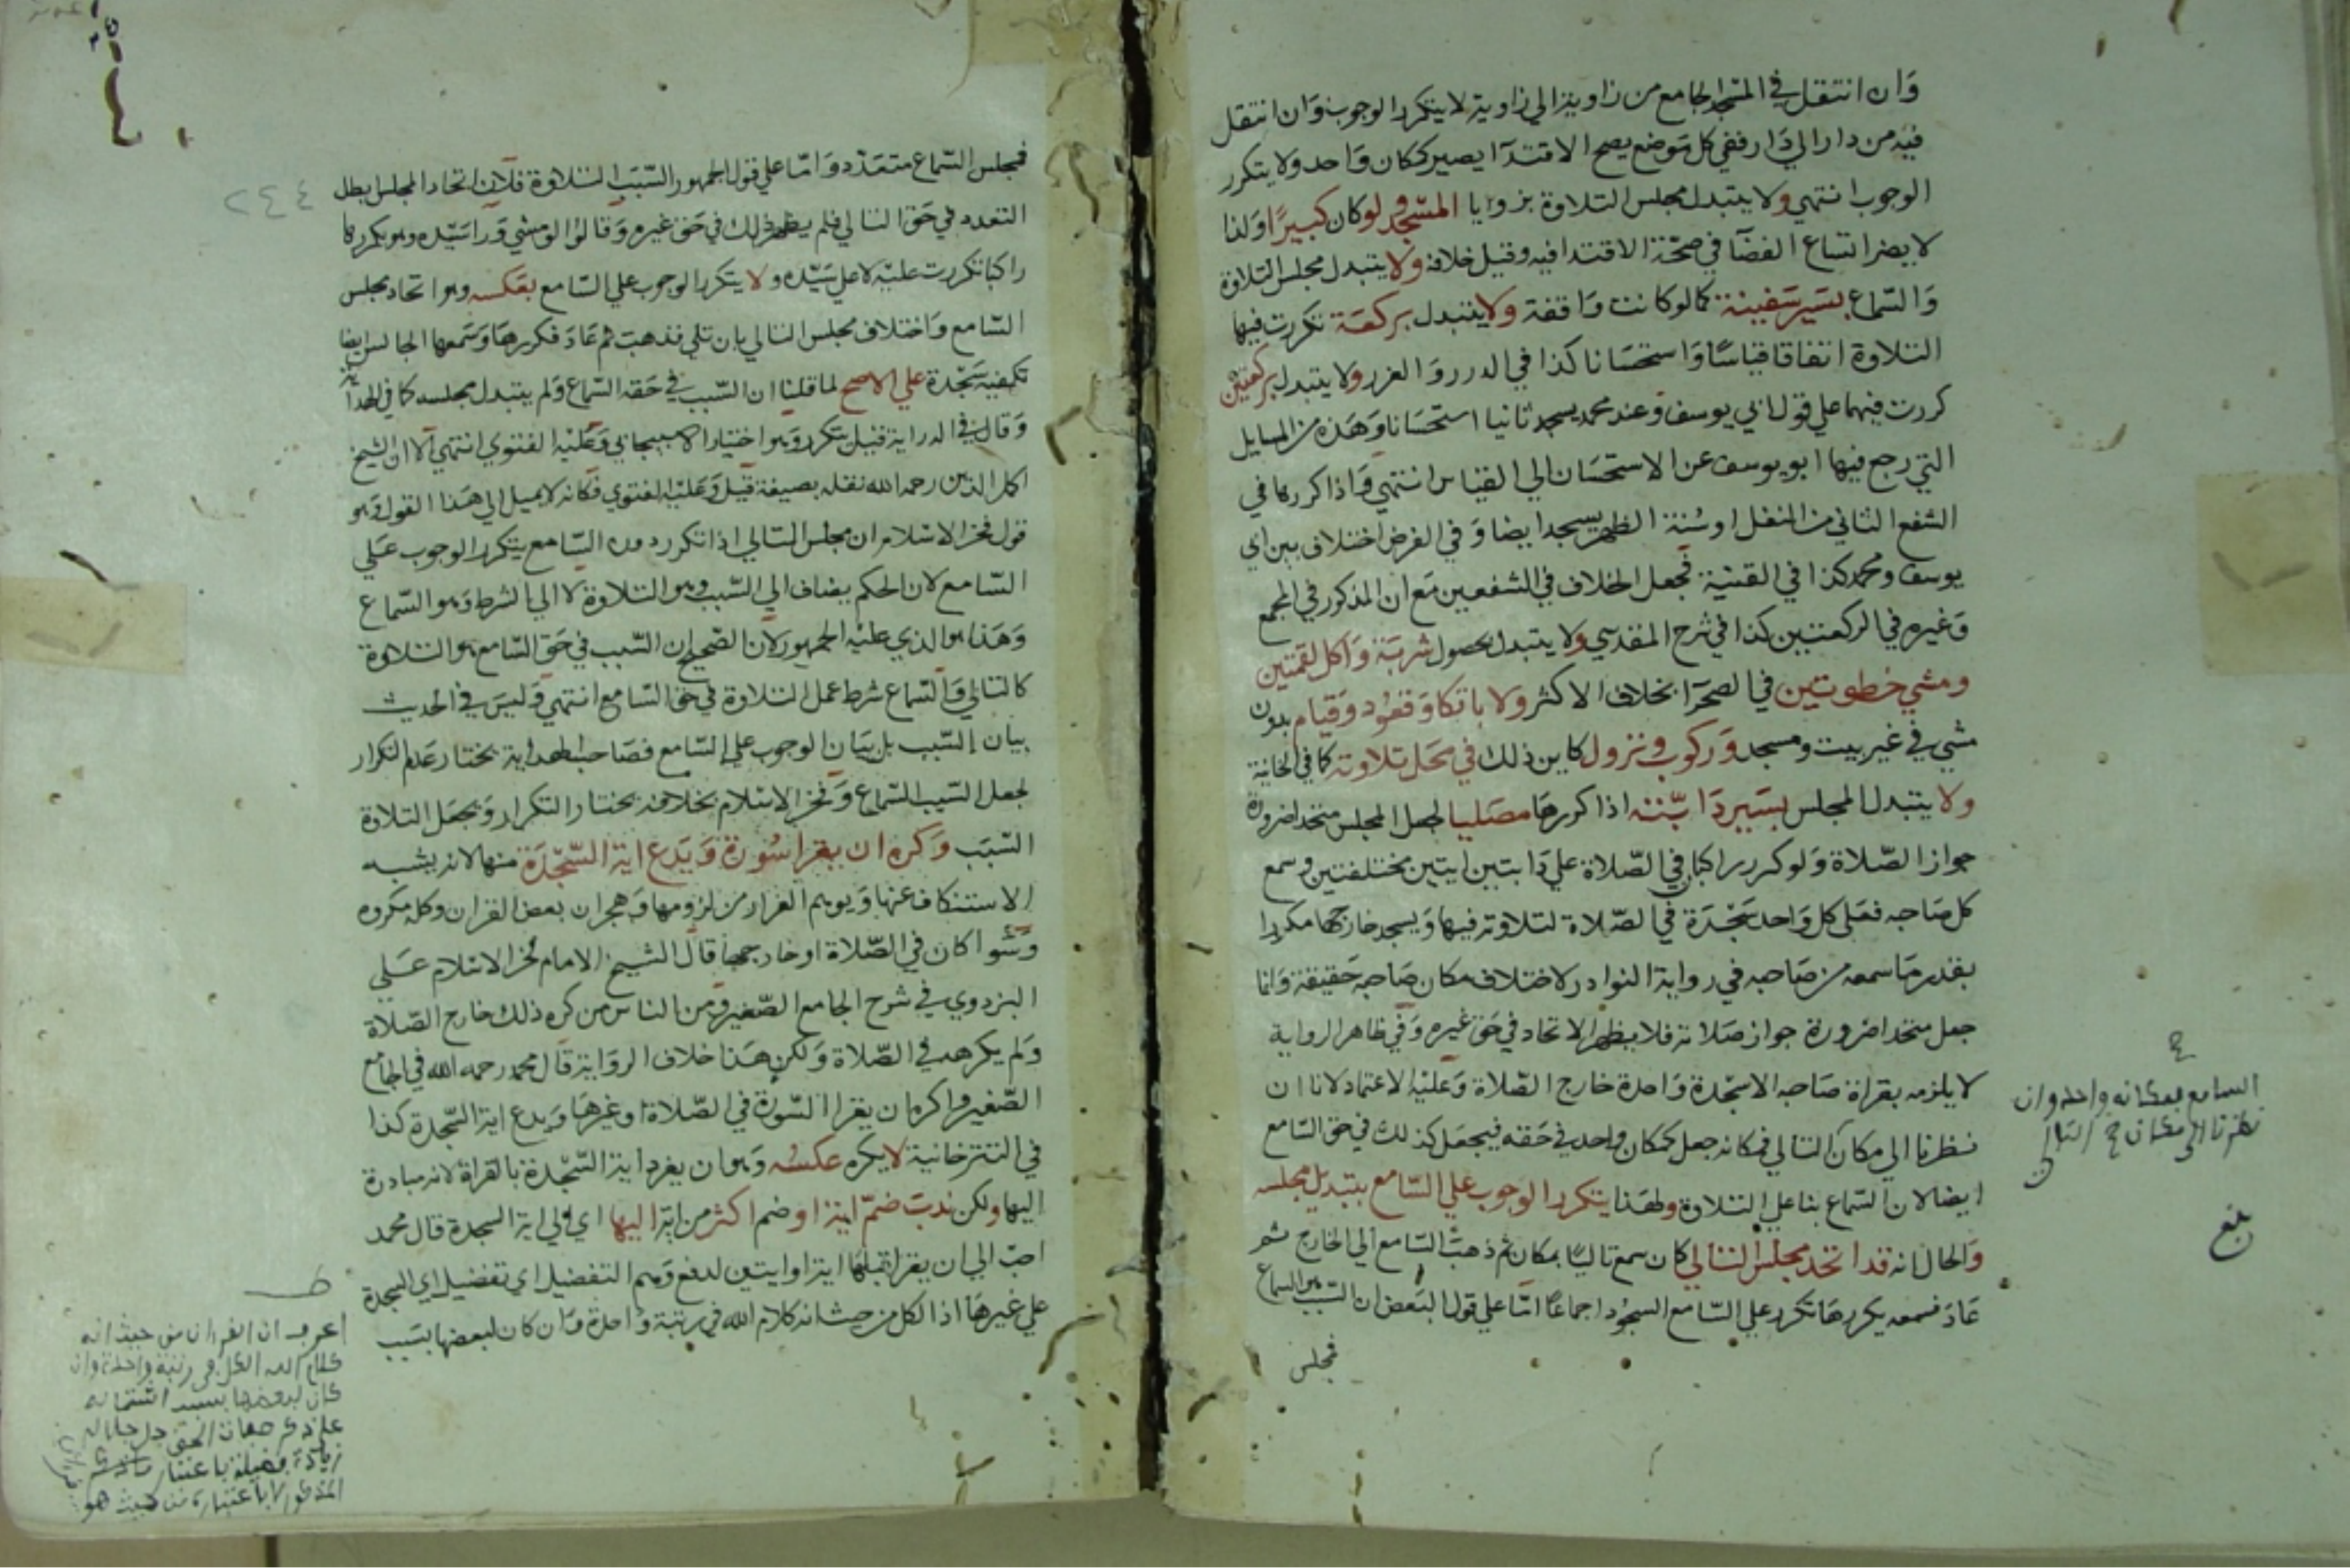 وان انتقل في المسجد الجامع من زاوية الي زاوية لا يتكرر الوجوب وان انتقل
فيه من دار الي دار ففي كل موضع يصح الاقتدآ يصير كمكان واحد ولا يتكرر
الوجوب انتهي ولا يتبدل مجلس التلاوة بزوايا المسجد ولو كان كبيرًا ولذا
لا يضر اتساع الفضآ في صحة الاقتدا فيه وقيل خلافه ولا يتبدل مجلس التلاوة
والسماع بسير سفينة كما لو كانت واقفة ولا يتبدل بركعة تكررت فيها
التلاوة اتفاقا قياسًا واستحسانا كذا في الدرر والغرر ولا يتبدل بركعتين
كررت فيهما علي قول ابي يوسف وعند محمد يسجد ثانيا استحسانا وهذه من المسايل
التي رجع فيها ابو يوسف عن الاستحسان الي القياس انتهي واذا كررها في
الشفع الثاني من النفل او سنة الظهر يسجد ايضا وفي الفرض اختلاف بين ابي
يوسف ومحمد كذا في القنية فجعل الخلاف في الشفعين مع ان المذكور في المجمع
وغيره في الركعتين كذا في شرح المقدسي ولا يتبدل بحصول شربة واكل لقمتين
ومشي خطوتين في الصحرآ بخلاف الاكثر ولا باتكا وقعود وقيام بدون
مشي في غير بيت ومسجد وركوب ونزول كاين ذلك في محل تلاوته كما في الخانية
ولا يتبدل المجلس بسير دابته اذا كررها مصليا لجعل المجلس متحدا ضرورة
جواز الصلاة ولو كررر اكبان في الصلاة علي دابتين ايتين مختلفتين وسمع
كل صاحبه فعلي كل واحد سجدة في الصلاة لتلاوته فيها ويسجد خارجها مكررا
بقدر ما سمعه من صاحبه في رواية النوادر لاختلاف مكان صاحبه حقيقة وانما
جعل متحدا ضرورة جواز صلاته فلا يظهر الاتحاد في حق غيره وفي ظاهر الرواية
لا يلزمه بقراة صاحبه الا سجدة واحدة خارج الصلاة وعليه الاعتماد لانا ان
نظرنا الي مكان التالي فمكانه جعل كمكان واحد في حقه فيجعل كذلك في حق السامع
ايضا لان السماع بنا علي التلاوة ولهذا يتكرر الوجوب علي السامع بتبديل مجلسه
والحال انه قد اتحد مجلس التالي كان سمع تاليًا بمكان ثم ذهب السامع الي الخارج ثم
عاد فسمعه يكررها تكرر علي السامع السجود اجماعًا اما علي قول البعض ان السبب هو السماع
فمجلس
السامع بمكانه واحد وان
نظرنا الي مكان التالي
بلغ
٢٤٤
فمجلس السماع متعدد واما علي قول الجمهور السبب التلاوة فلان اتحاد المجلس ابطل
التعدد في حق التالي فلم يظهر ذلك في حق غيره وقالوا لو مشي وراسيده وهو يكررها
راكبا تكررت عليه لا علي سيده ولا يتكرر الوجوب علي السامع بعكسه وهو اتحاد مجلس
السامع واختلاف مجلس التالي بان تلي فذهب ثم عاد فكررها وسمعها الجالس ايضا
تكفيه سجدة علي الاصح لما قلنا ان السبب في حقه السماع ولم يتبدل مجلسه كما في الهداية
وقال في الدراية قيل يتكرر وهو اختيار الاسبيجابي وعليه الفتوي انتهي الا ان الشيخ
اكمل الدين رحمه الله نقله بصيغة قيل وعليه الفتوي فكانه لا يميل الي هذا القول وهو
قول فخر الاسلام ان مجلس التالي اذا تكرر دون السامع يتكرر الوجوب علي
السامع لان الحكم يضاف الي السبب وهو التلاوة لا الي الشرط وهو السماع
وهذا هو الذي عليه الجمهور لان الصحيح ان السبب في حق السامع هو التلاوة
كالتالي والسماع شرط عمل التلاوة في حق السامع انتهي وليس في الحديث
بيان السبب بل بيان الوجوب علي السامع فصاحب الهداية يختار عدم التكرار
لجعل السبب السماع وفخر الاسلام بخلافه يختار التكرار ويجعل التلاوة
السبب وكره ان يقرا سورة ويدع اية السجدة منها لانه يشبه
الاستنكاف عنها ويوهم الفرار من لزومها وهجران بعض القران وكله مكروه
وسوا كان في الصلاة او خارجها قال الشيخ الامام فخر الاسلام علي
البزدوي في شرح الجامع الصغير ومن الناس من كره ذلك خارج الصلاة
ولم يكرهه في الصلاة ولكن هذا خلاف الرواية قال محمد رحمه الله في الجامع
الصغير واكره ان يقرا السورة في الصلاة او غيرها ويدع اية السجدة كذا
في التتر خانية لا يكره عكسه وهو ان يفرد اية السجدة بالقراة لانه مبادرة
اليها ولكن ندب ضم اية او ضم اكثر من اية اليها اي الي اية السجدة قال محمد
احب الي ان يقرا قبلها اية او ايتين لدفع وهم التفضيل اي تفضيل اي السجدة
علي غيرها اذ الكل من حيث انه كلام الله في رتبة واحدة وان كان لبعضها بسبب
اعرف ان القران من حيث انه
كلام الله الكل في رتبة واحدة وان
كان لبعضها بسبب اشتماله
علي ذكر صفات الحق جل جلاله
زيادة فضيلة باعتبار
المذكور لا باعتباره من حيث هو